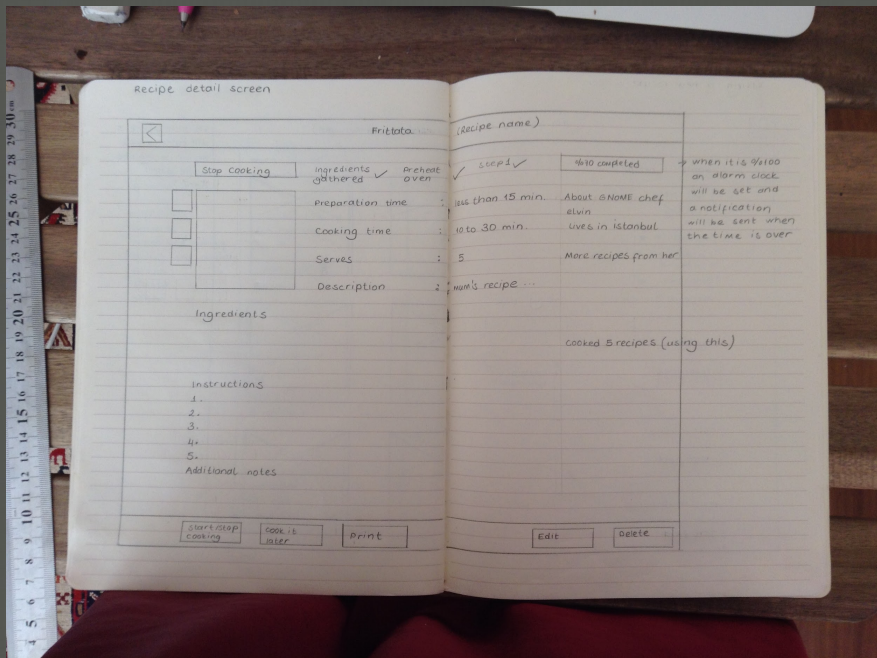 Recipe detail screen
Frittata (Recipe name)
Stop Cooking
Ingredients gathered ✓
Preheat oven ✓
Step1 ✓
%70 completed
→ when it is %100
an alarm clock
will be set and
a notification
will be sent when
the time is over
Preparation time : less than 15 min.
Cooking time : 10 to 30 min.
Serves : 5
Description : mum's recipe ...
About GNOME chef
elvin
Lives in istanbul
More recipes from her
Cooked 5 recipes (using this)
Ingredients
Instructions
1.
2.
3.
4.
5.
Additional notes
Start/Stop
cooking
Cook it
later
Print
Edit
Delete
30 cm
29
28
27
26
25
24
23
22
21
20
19
18
17
16
15
14
13
12
11
10
9
8
7
6
5
4